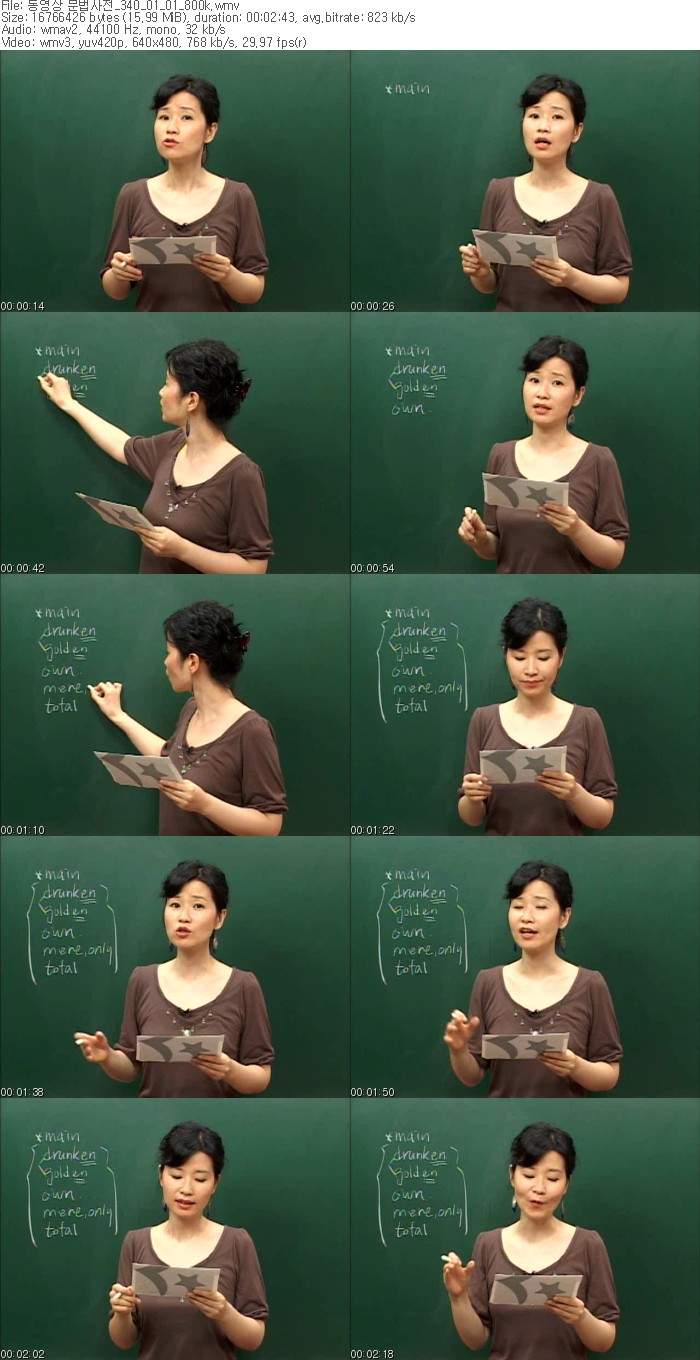 File: 동영상 문법사전_340_01_01_800k.wmv
Size: 16766426 bytes (15.99 MiB), duration: 00:02:43, avg.bitrate: 823 kb/s
Audio: wmav2, 44100 Hz, mono, 32 kb/s
Video: wmv3, yuv420p, 640x480, 768 kb/s, 29.97 fps(r)
00:00:14
*main
00:00:26
*main
drunken
en
00:00:42
*main
drunken
golden
own.
00:00:54
*main
drunken
golden
own.
mere,
total
00:01:10
*main
drunken
golden
own.
mere, only
total
00:01:22
*main
drunken
golden
own.
mere, only
total
00:01:38
*main
drunken
golden
own.
mere, only
total
00:01:50
*main
drunken
golden
own.
mere, only
total
00:02:02
*main
drunken
golden
own.
mere, only
total
00:02:18